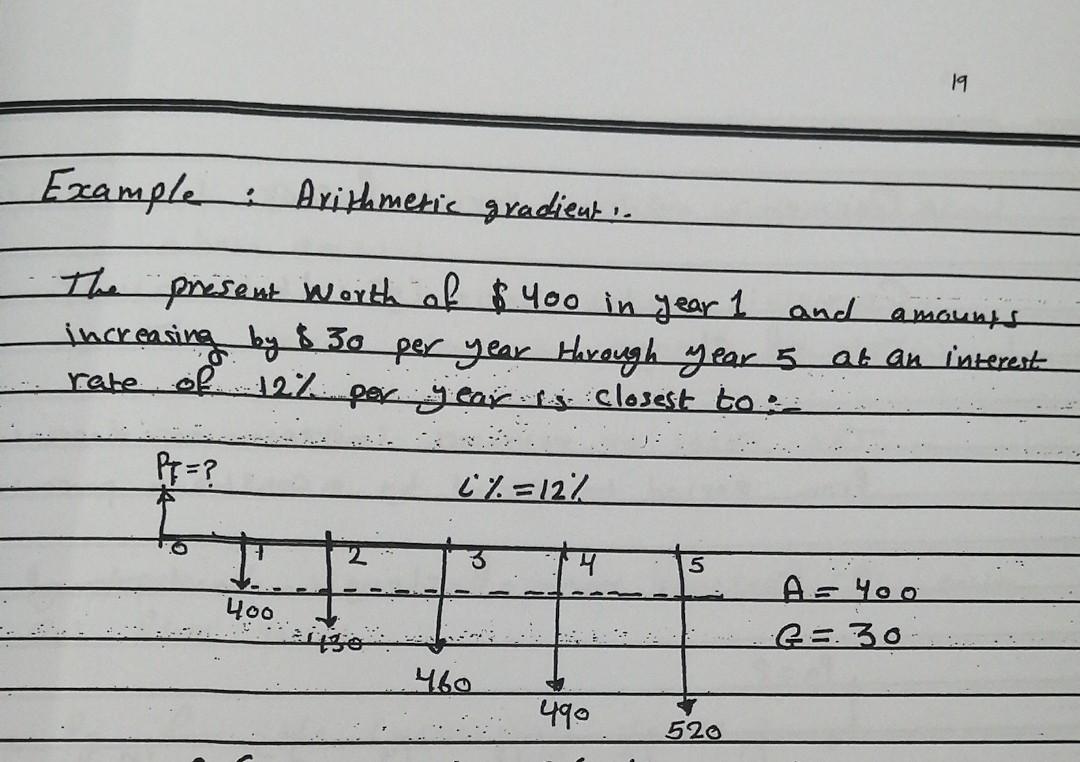 19
Example : Arithmetic gradient :-
The present worth of $ 400 in year 1 and amounts
increasing by $ 30 per year through year 5 at an interest
rate of 12% per year is closest to :-
PT = ?
i% = 12%
0 1 2 3 4 5
A = 400
400
G = 30
430
460
490
520